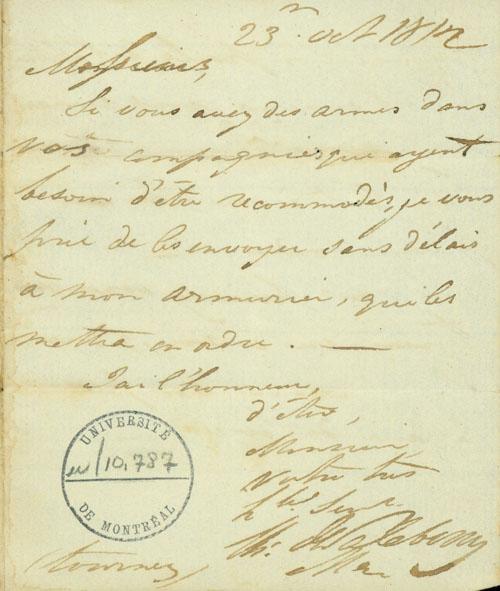 23 oct 1812
Messieurs,
Si vous avez des armes dans
vos compagnies qui ayent
besoin d'être recommodés, je vous
prie de les envoyer sans délais
à mon armurier, qui les
mettra en ordre. —
J'ai l'honneur,
d'être,
Monsieur,
Votre très
hble Servr
UNIVERSITÉ
10,787
DE MONTRÉAL
tournez